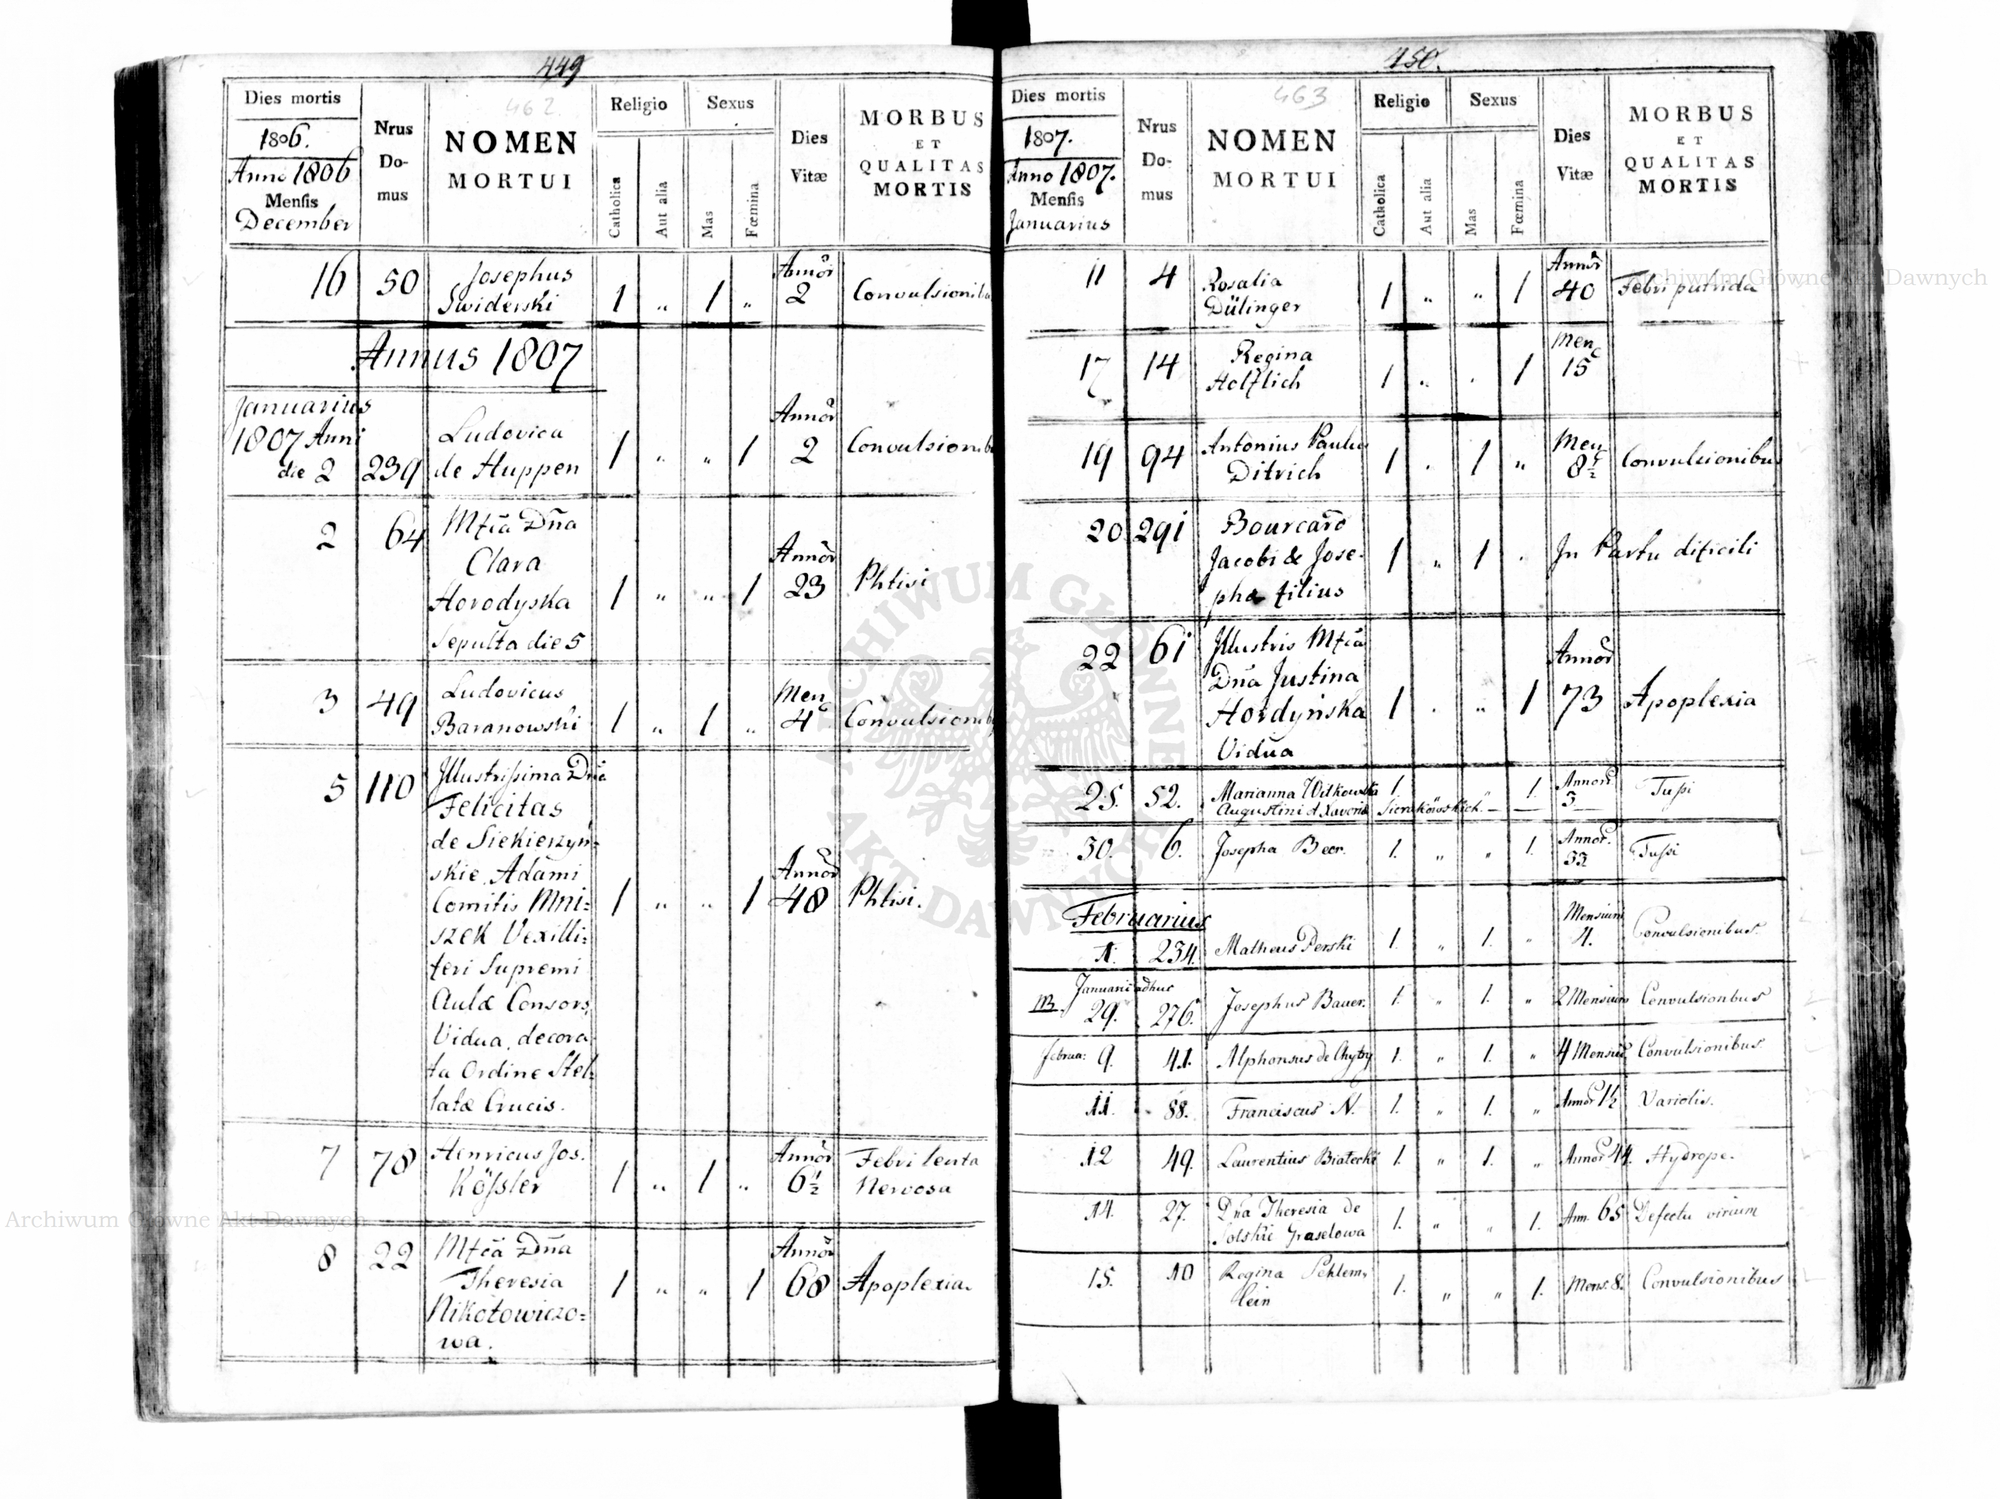 449
462
Dies mortis
1806.
Anno 1806
Mensis
December
Nrus Do- mus
NOMEN MORTUI
Religio
Catholica
Aut alia
Sexus
Mas
Fœmina
Dies Vitæ
MORBUS ET QUALITAS MORTIS
16 50 Josephus Annor̃
Swiderski 1 " 1 " 2 Convulsionibu
Annus 1807
Januarius
1807 Anni Ludovica Annor̃
die 2 239 de Huppen 1 " " 1 2 Convulsionib
2 64 Mfca Dña
Clara Annor̃
Horodyska 1 " " 1 23 Phtisi
Sepulta die 5
3 49 Ludovicus Men
Baranowski 1 " 1 " 4 Convulsionib
5 110 Illustrissima Dña
Felicitas
de Siekierzyń-
skie Adami Annor̃
Comitis Mni- 1 " " 1 48 Phtisi.
szek Vexilli-
feri Supremi
Aulæ Consors,
Vidua, decora
ta Ordine Stel-
latæ Crucis.
7 78 Henricus Jos. Annor̃ Febri lenta
Kössler 1 " 1 " 6½ Nervosa
8 22 Mfca Dña Annor̃
Theresia 1 " " 1 68 Apoplexia.
Nikotowiczo-
wa.
450.
463
Dies mortis
1807.
Anno 1807.
Mensis
Januarius
Nrus Do- mus
NOMEN MORTUI
Religio
Catholica
Aut alia
Sexus
Mas
Fœmina
Dies Vitæ
MORBUS ET QUALITAS MORTIS
11 4 Rosalia Annor̃
Dülinger 1 " " 1 40 Febri putrida
17 14 Regina Men
Holflich 1 " . 1 15
19 94 Antonius Paulu Men
Ditrich 1 . 1 " 8½ Convulsionibu
20 291 Bourcard
Jacobi & Jose- 1 " 1 . In Partu dificili
phæ filius
22 61 Illustris Mfca
Dña Justina Annor̃
Hordyńska 1 . " 1 73 Apoplexia
Vidua
25. 52. Marianna Witkowska 1. " 1. Annor̃ 3 Tussi
Augustini et Xaveria Sierakowskich
30. 6. Josepha Beer. 1. " " 1. Annor. 33 Tussi
Februarius
1. 234. Matheus Perski 1. " 1. " Mensium 4. Convulsionibus
Januarii adhuc
NB. 29. 276. Josephus Bauer. 1. " 1. " 2 Mensium Convulsionibus
februa: 9. 41. Alphonsus de Chytry 1. " 1. " 4 Mensiu Convulsionibus
11. 88. Franciscus N. 1. " 1. " Annor 1½ Variolis.
12 49. Laurentius Białecki 1. " 1. " Annor 44. Hydrope.
14. 27. Dña Theresia de
Solskie Graselowa 1. " " 1. Ann. 65 Defectu virium
15. 10 Regina Schlem,
lein 1. " " 1. Mens. 8. Convulsionibus
Archiwum Główne Akt Dawnych
Archiwum Główne Akt Dawnych
ARCHIWUM GŁÓWNE AKT DAWNYCH